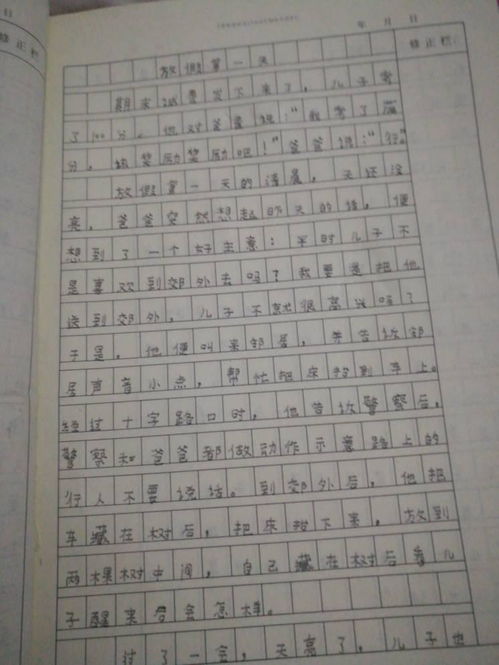 年 月 日
修正栏
修正栏
放假第一天
期末试卷发下来了，儿子考
了100分。他对爸爸说：“我考了满
分，给奖励奖励吧！”爸爸说：“行。”
放假第一天的清晨，天还没
亮，爸爸突然想起昨天的话，便
想到了一个好主意：平时儿子不
是喜欢到郊外去吗？我要是把他
送到郊外，儿子不就很高兴吗？
于是，他便叫来邻居，并告诉邻
居声音小点，帮忙把床抬到车上。
经过十字路口时，他告诉警察后，
警察和爸爸都做动作示意路上的
行人不要说话。到郊外后，他把
车藏在树后，把床抬下来，放到
两棵树中间，自己藏在树后看儿
子醒来后会怎样。
过了一会，天亮了，儿子也